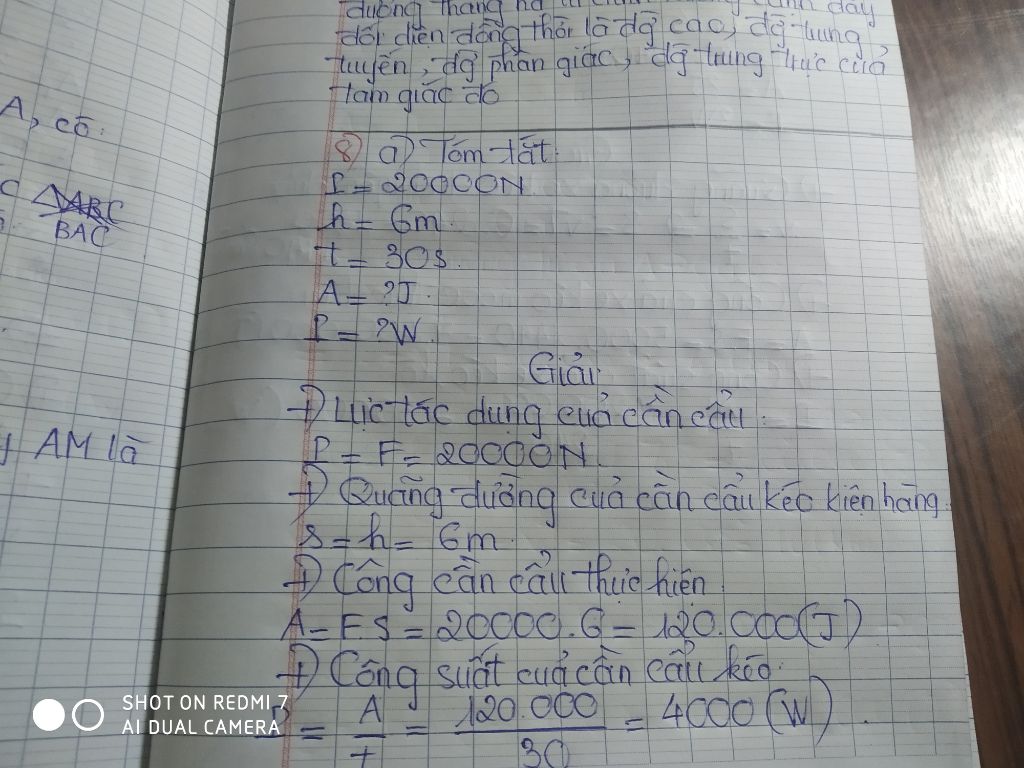 đối diện đồng thời là đg cao, đg trung
tuyến, đg phân giác, đg trung trực của
tam giác đó
A, có:
C ΔABC
BAC
y AM là
8) a) Tóm tắt:
P = 20000N
h = 6m.
t = 30s.
A = ?J.
P = ?W.
Giải
+) Lực tác dụng của cần cẩu:
P = F = 20000N.
+) Quãng đường của cần cẩu kéo kiện hàng:
s = h = 6m.
+) Công cần cẩu thực hiện.
A = F.S = 20000.6 = 120.000(J)
+) Công suất của cần cẩu kéo:
P = A/t = 120.000/30 = 4000 (W).
SHOT ON REDMI 7
AI DUAL CAMERA